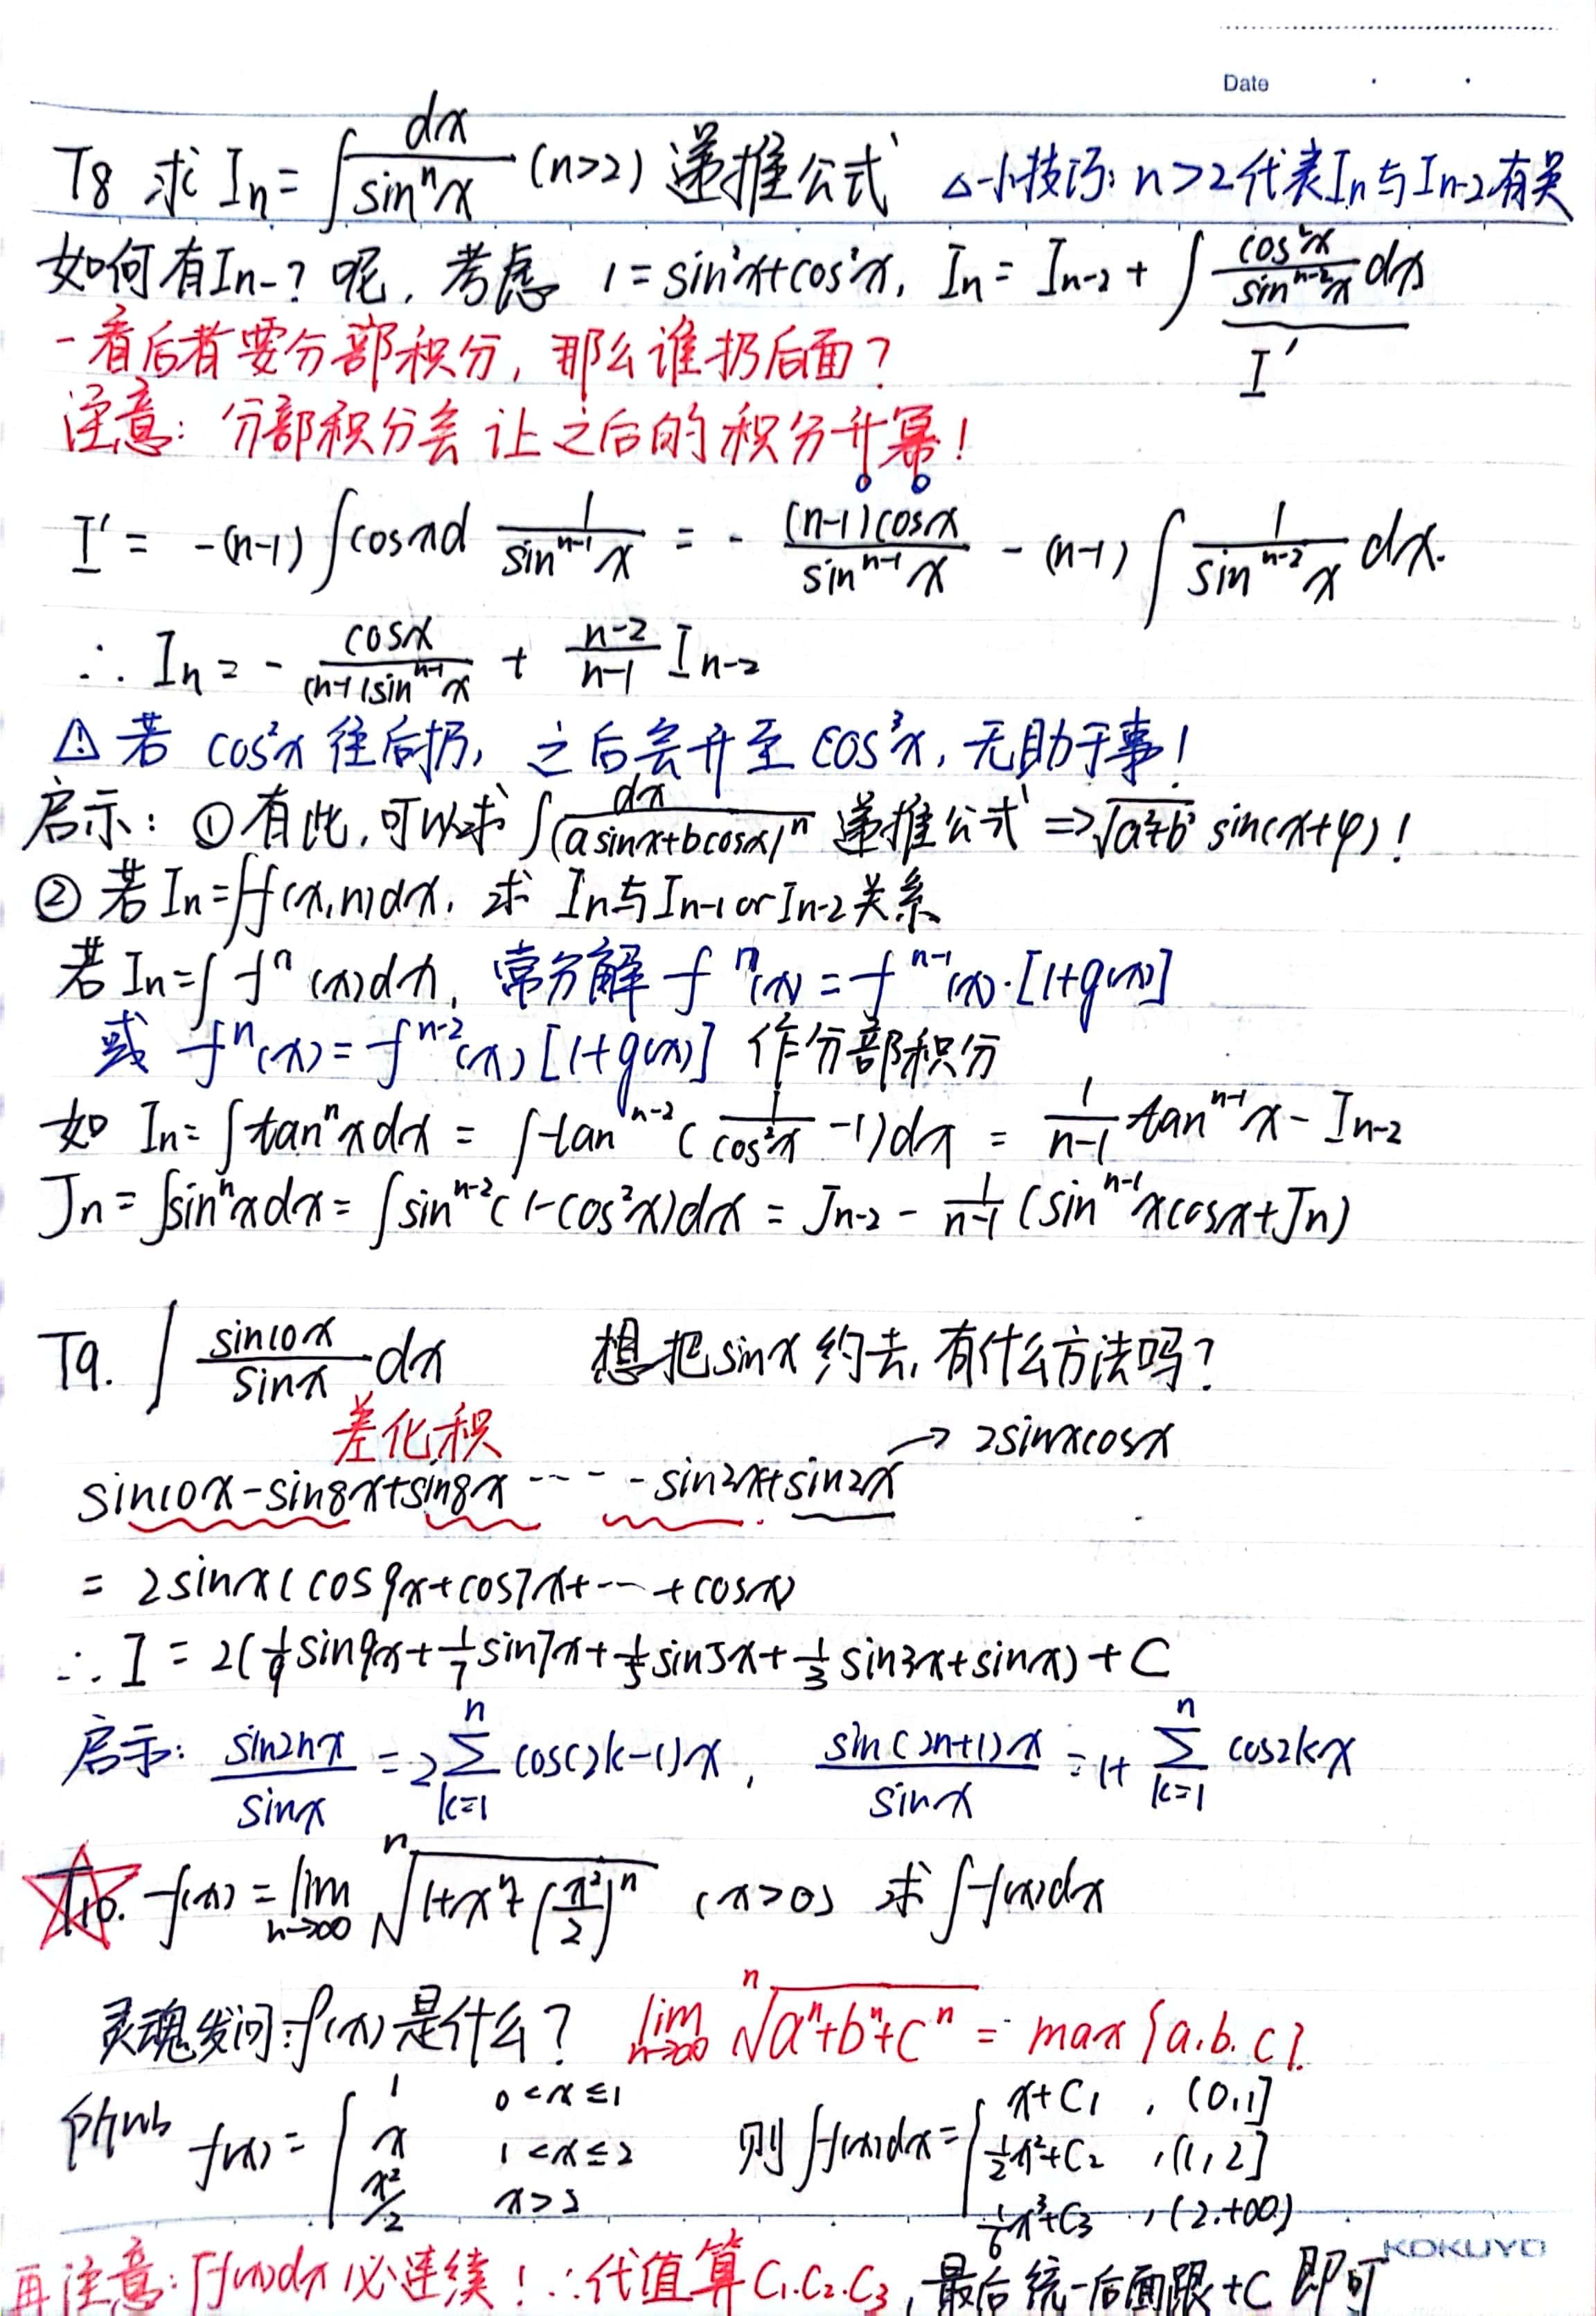 Date
T8 求 Iₙ = ∫ dx/sinⁿx (n>2) 递推公式 △小技巧: n>2代表Iₙ与Iₙ₋₂有关
如何有Iₙ₋? 呢, 考虑 1=sin²x+cos²x, Iₙ = Iₙ₋₂ + ∫ cos²x/sinⁿ⁻²x dx
I′
一看后者要分部积分, 那么谁扔后面?
注意: 分部积分会让之后的积分升幂!
I′ = -(n-1) ∫cosxd 1/sinⁿ⁻¹x = - (n-1)cosx/sinⁿ⁻¹x - (n-1) ∫ 1/sinⁿ⁻²x dx.
∴ Iₙ = - cosx/(n-1)sinⁿ⁻¹x + n-2/n-1 Iₙ₋₂
⚠ 若 cos²x 往后扔, 之后会升至 cos³x, 无助于事!
启示: ①有此, 可以求 ∫ dx/(asinx+bcosx)ⁿ 递推公式 ⇒ √(a²+b²) sin(x+φ)!
② 若 Iₙ=∫f(x,n)dx, 求 Iₙ与Iₙ₋₁ or Iₙ₋₂关系
若 Iₙ=∫fⁿ(x)dx, 常分解 fⁿ(x) = fⁿ⁻¹(x)·[1+g(x)]
或 fⁿ(x) = fⁿ⁻²(x)[1+g(x)] 作分部积分
如 Iₙ=∫tanⁿxdx = ∫tanⁿ⁻²(1/cos²x -1)dx = 1/n-1 tanⁿ⁻¹x - Iₙ₋₂
Jₙ = ∫sinⁿxdx = ∫sinⁿ⁻²(1-cos²x)dx = Jₙ₋₂ - 1/n-1 (sinⁿ⁻¹xcosx+Jₙ)
T9. ∫ sin10x/sinx dx 想把sinx约去, 有什么方法吗?
差化积 → 2sinxcosx
sin10x-sin8x+sin8x ---- -sin2x+sin2x
= 2sinx(cos9x+cos7x+---+cosx)
∴ I = 2(1/9 sin9x+1/7 sin7x+1/5 sin5x+1/3 sin3x+sinx)+C
启示: sin2nx/sinx = 2 ∑ₖ₌₁ⁿ cos(2k-1)x, sin(2n+1)x/sinx = 1+ ∑ₖ₌₁ⁿ cos2kx
T10. f(x) = lim n→∞ ⁿ√(1+xⁿ+(x²/2)ⁿ) (x>0) 求 ∫f(x)dx
灵魂发问: f(x)是什么? lim n→∞ ⁿ√(aⁿ+bⁿ+cⁿ) = max{a.b.c}.
所以 f(x) = { 1 0<x≤1 则 ∫f(x)dx = { x+C₁ , (0,1]
x 1<x≤2 1/2x²+C₂ , (1,2]
x²/2 x>2 1/6x³+C₃ , (2.+∞)
再注意: ∫f(x)dx必连续! ∴代值算C₁.C₂.C₃, 最后统一后面跟+C即可
KOKUYO